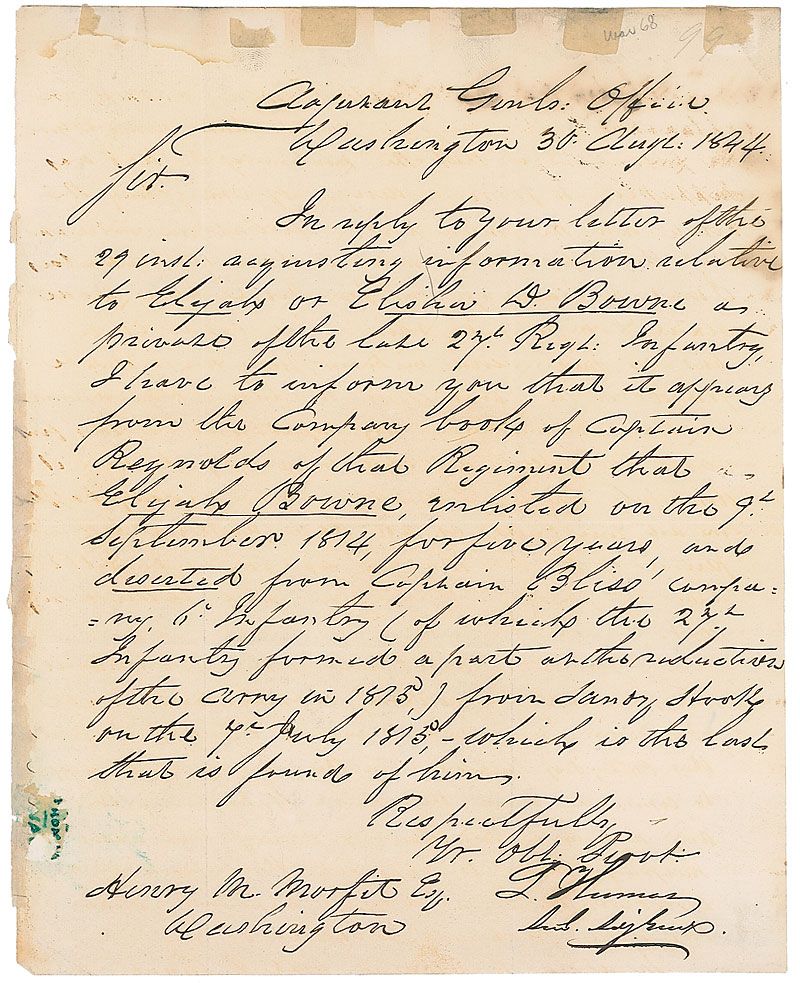 Mar 68
99
Adjutant Genls: Office
Washington 30 Augt: 1844.
Sir.
In reply to your letter of the
29 inst: requesting information relative
to Elijah or Elisha D. Bowne as
private of the late 27th Regt: Infantry,
I have to inform you that it appears
from the Company book of Captain
Reynolds of that Regiment that
Elijah Bowne, enlisted on the 9th
September 1814, for five years, and
deserted from Captain Bliss' compa=
=ny, 6th Infantry (of which the 27th
Infantry formed a part at the reduction
of the Army in 1815,) from Sandy Hook
on the 7th July 1815,- which is the last
that is found of him.
Respectfully
Yr. Obt. Servt
L. Thomas
Henry M. Morfit Esq.
Washington